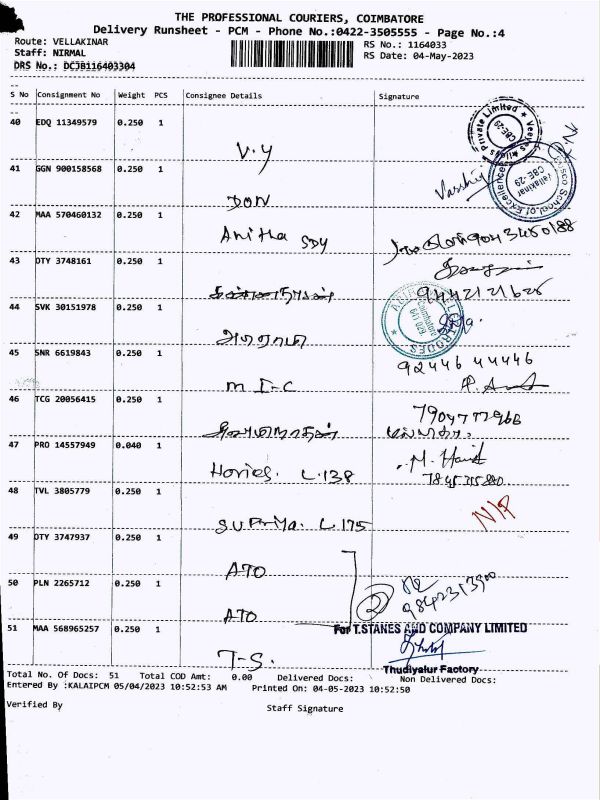 THE PROFESSIONAL COURIERS, COIMBATORE
Delivery Runsheet - PCM - Phone No.:0422-3505555 - Page No.:4
Route: VELLAKINAR
RS No.: 1164033
Staff: NIRMAL
RS Date: 04-May-2023
DRS No.: DCJB116403304
S No Consignment No Weight PCS Consignee Details Signature
40 EDQ 11349579 0.250 1
V.Y
41 GGN 900158568 0.250 1
DON
42 MAA 570460132 0.250 1
Anitha SDY
43 OTY 3748161 0.250 1
9442121626
44 SVK 30151978 0.250 1
45 SNR 6619843 0.250 1
92446 44446
M I-C
46 TCG 20056415 0.250 1
47 PRO 14557949 0.040 1
Hories. L.138
48 TVL 3805779 0.250 1
N/P
Supriya. L.175
49 OTY 3747937 0.250 1
ATO
50 PLN 2265712 0.250 1
2
ATO
51 MAA 568965257 0.250 1
For T.STANES AND COMPANY LIMITED
T-S.
Thudiyalur Factory
Total No. Of Docs: 51 Total COD Amt: 0.00 Delivered Docs: Non Delivered Docs:
Entered By :KALAIPCM 05/04/2023 10:52:53 AM Printed On: 04-05-2023 10:52:50
Verified By
Staff Signature